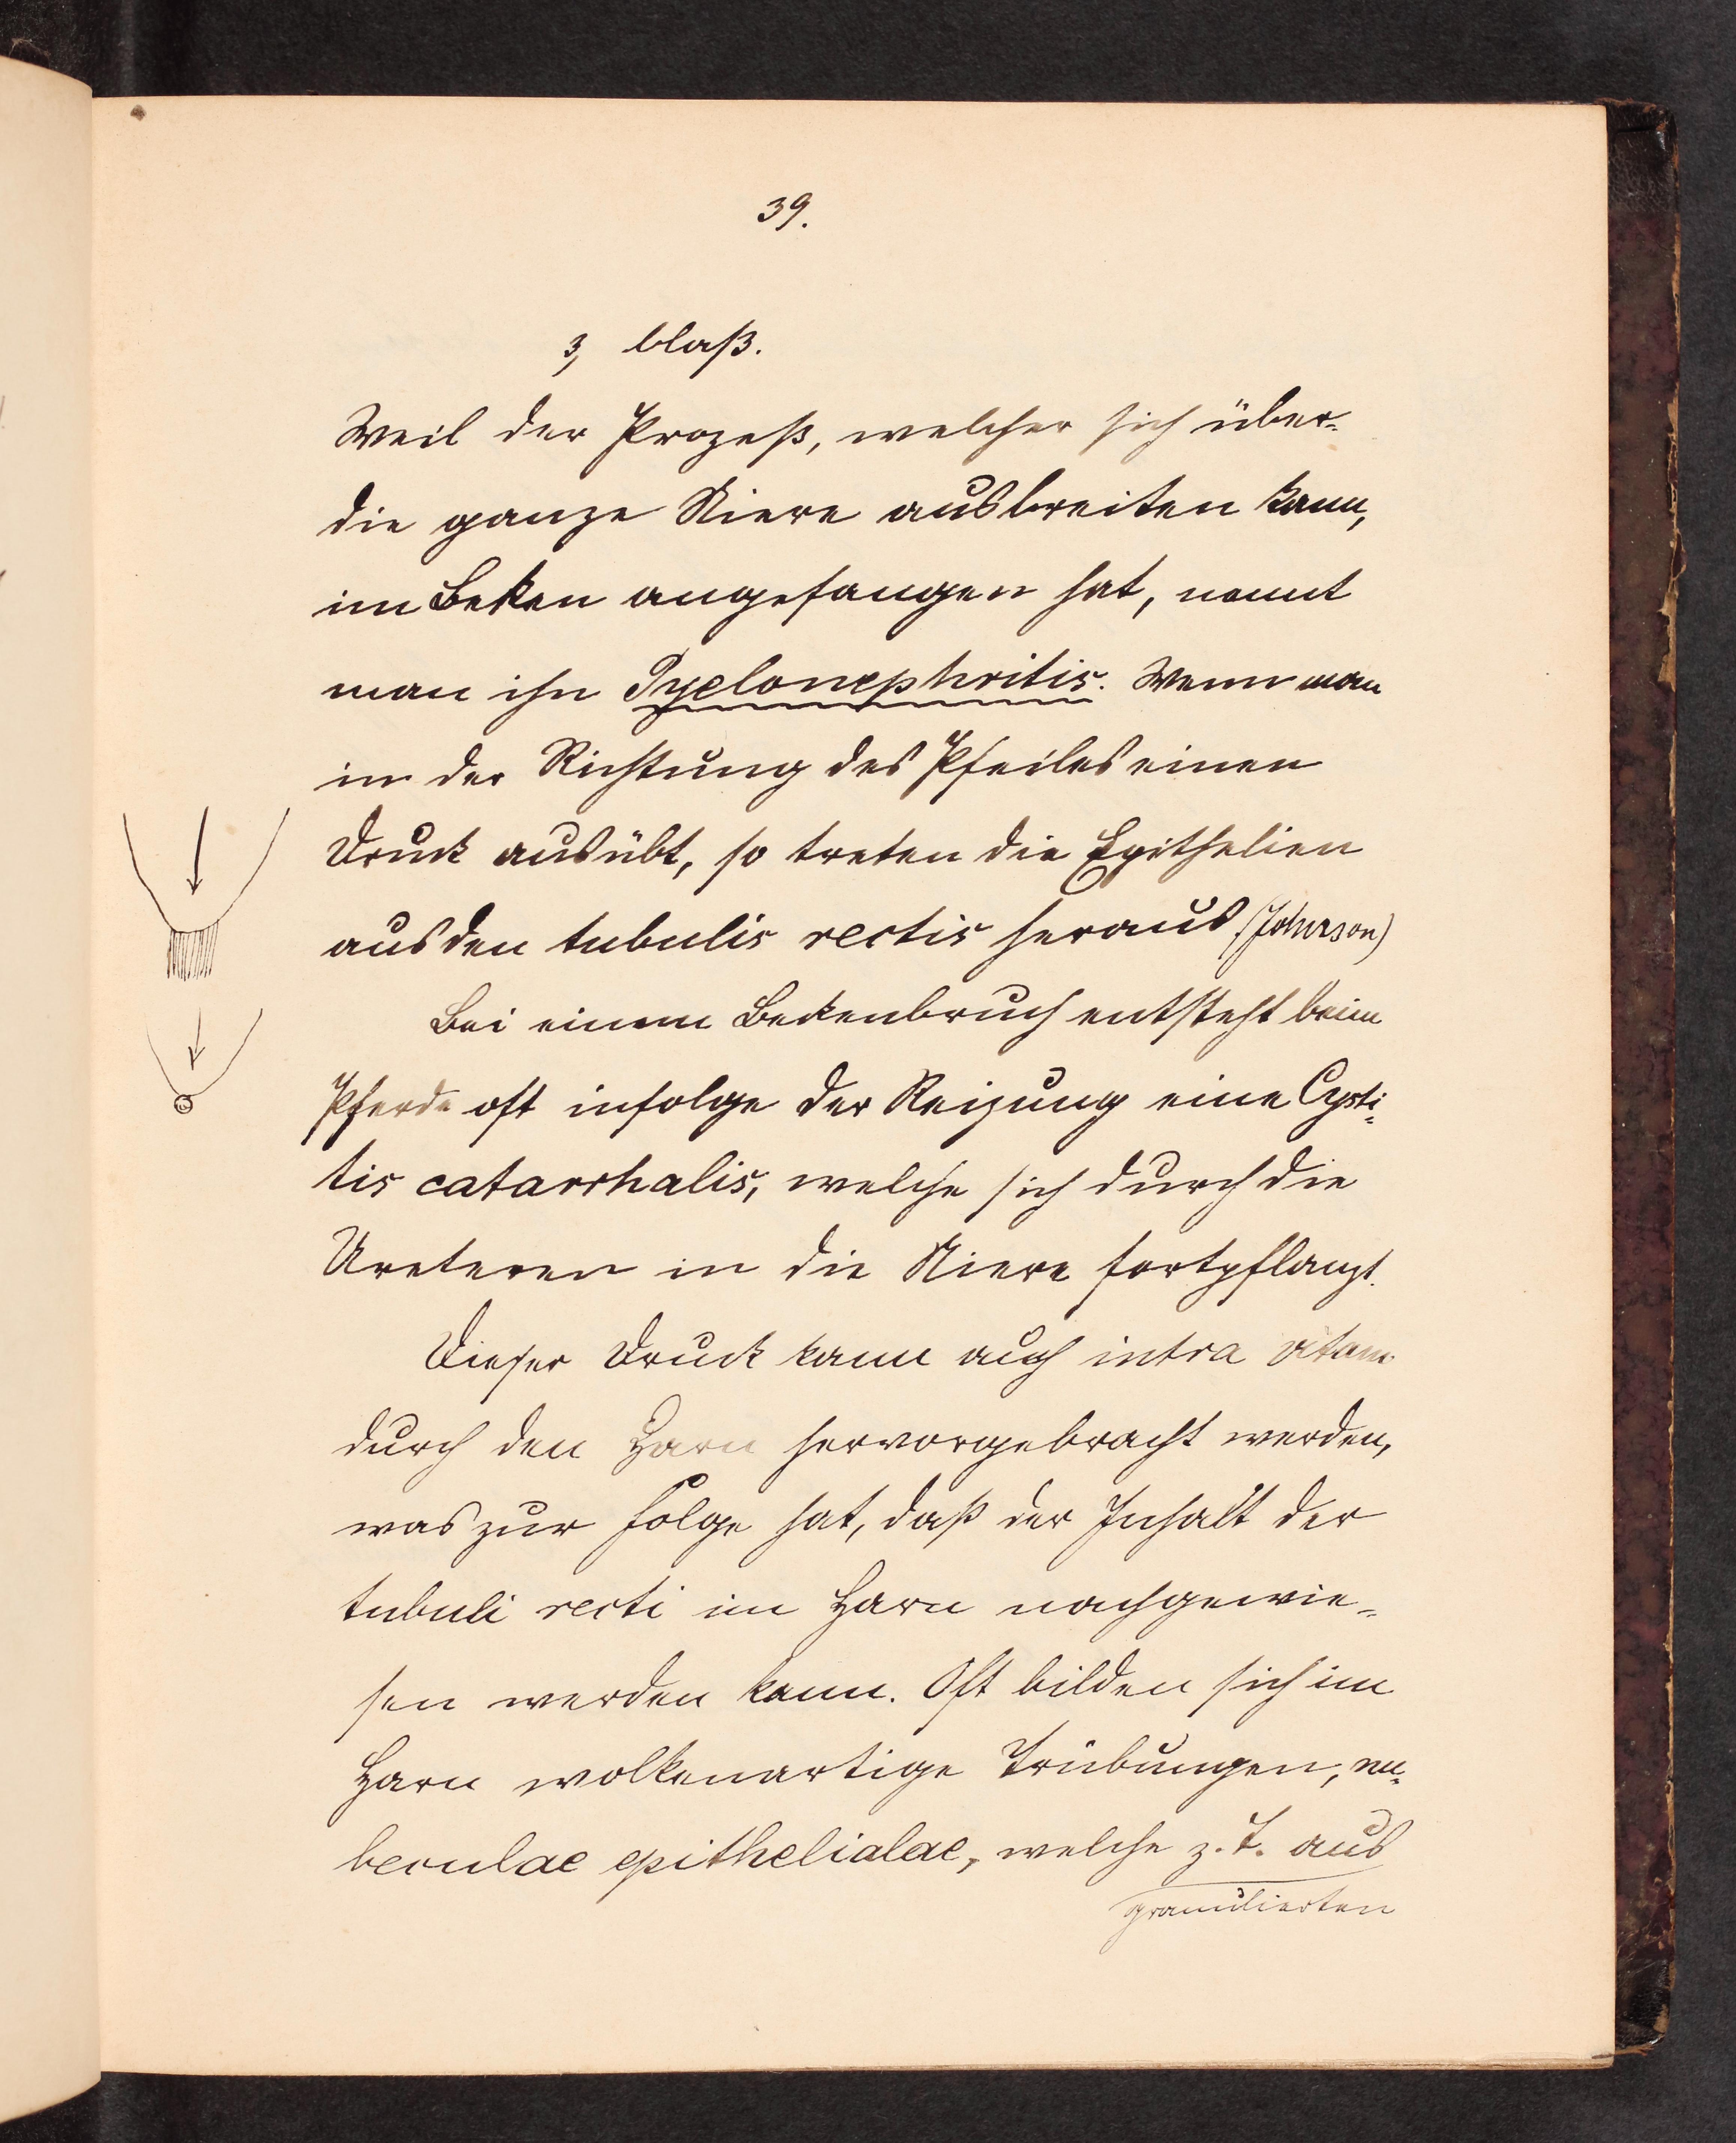 39.
3, blaß.
Weil der Prozeß, welcher sich über-
die ganze Niere ausbreiten kann,
im Beken angefangen hat, nennt
man ihn Pyelonephritis. Wenn man
in der Richtung des Pfeiles einen
Druck ausübt, so treten die Epithelien
aus den tubulis rectis heraus (Johnson)
Bei einem Beckenbruch entsteht beim
Pferde oft infolge der Reizung eine Cysti-
tis catarrhalis, welche sich durch die
Ureteren in die Niere fortpflanzt.
Dieser Druck kann auch intra vitam
durch den Harn hervorgebracht werden,
was zur Folge hat, daß der Inhalt der
tubuli recti im Harn nachgewie-
sen werden kann. Oft bilden sich im
Harn wolkenartige Trübungen, nu-
beculae epithelialae, welche z. T. aus
granulierten